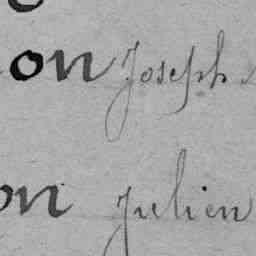 on Joseph
on Julien